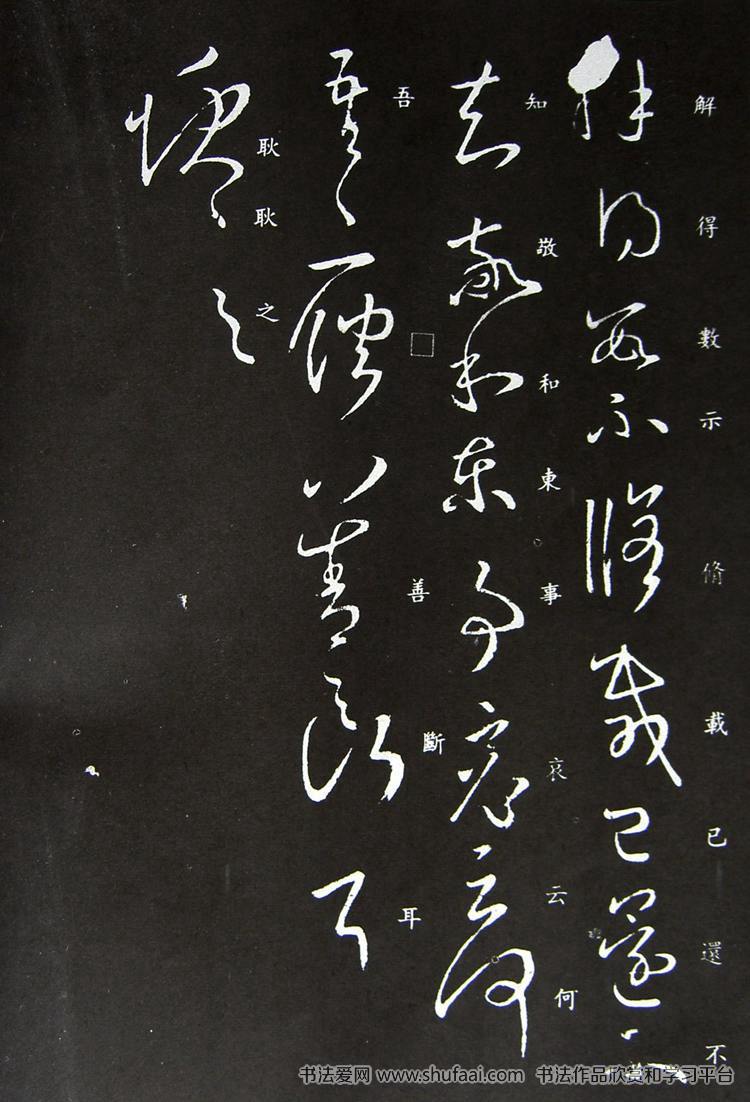 解得數示脩載已還不
知敬和東事哀云何
吾□善斷耳
耿耿之
书法爱网 www.shufaai.com 书法作品欣赏和学习平台